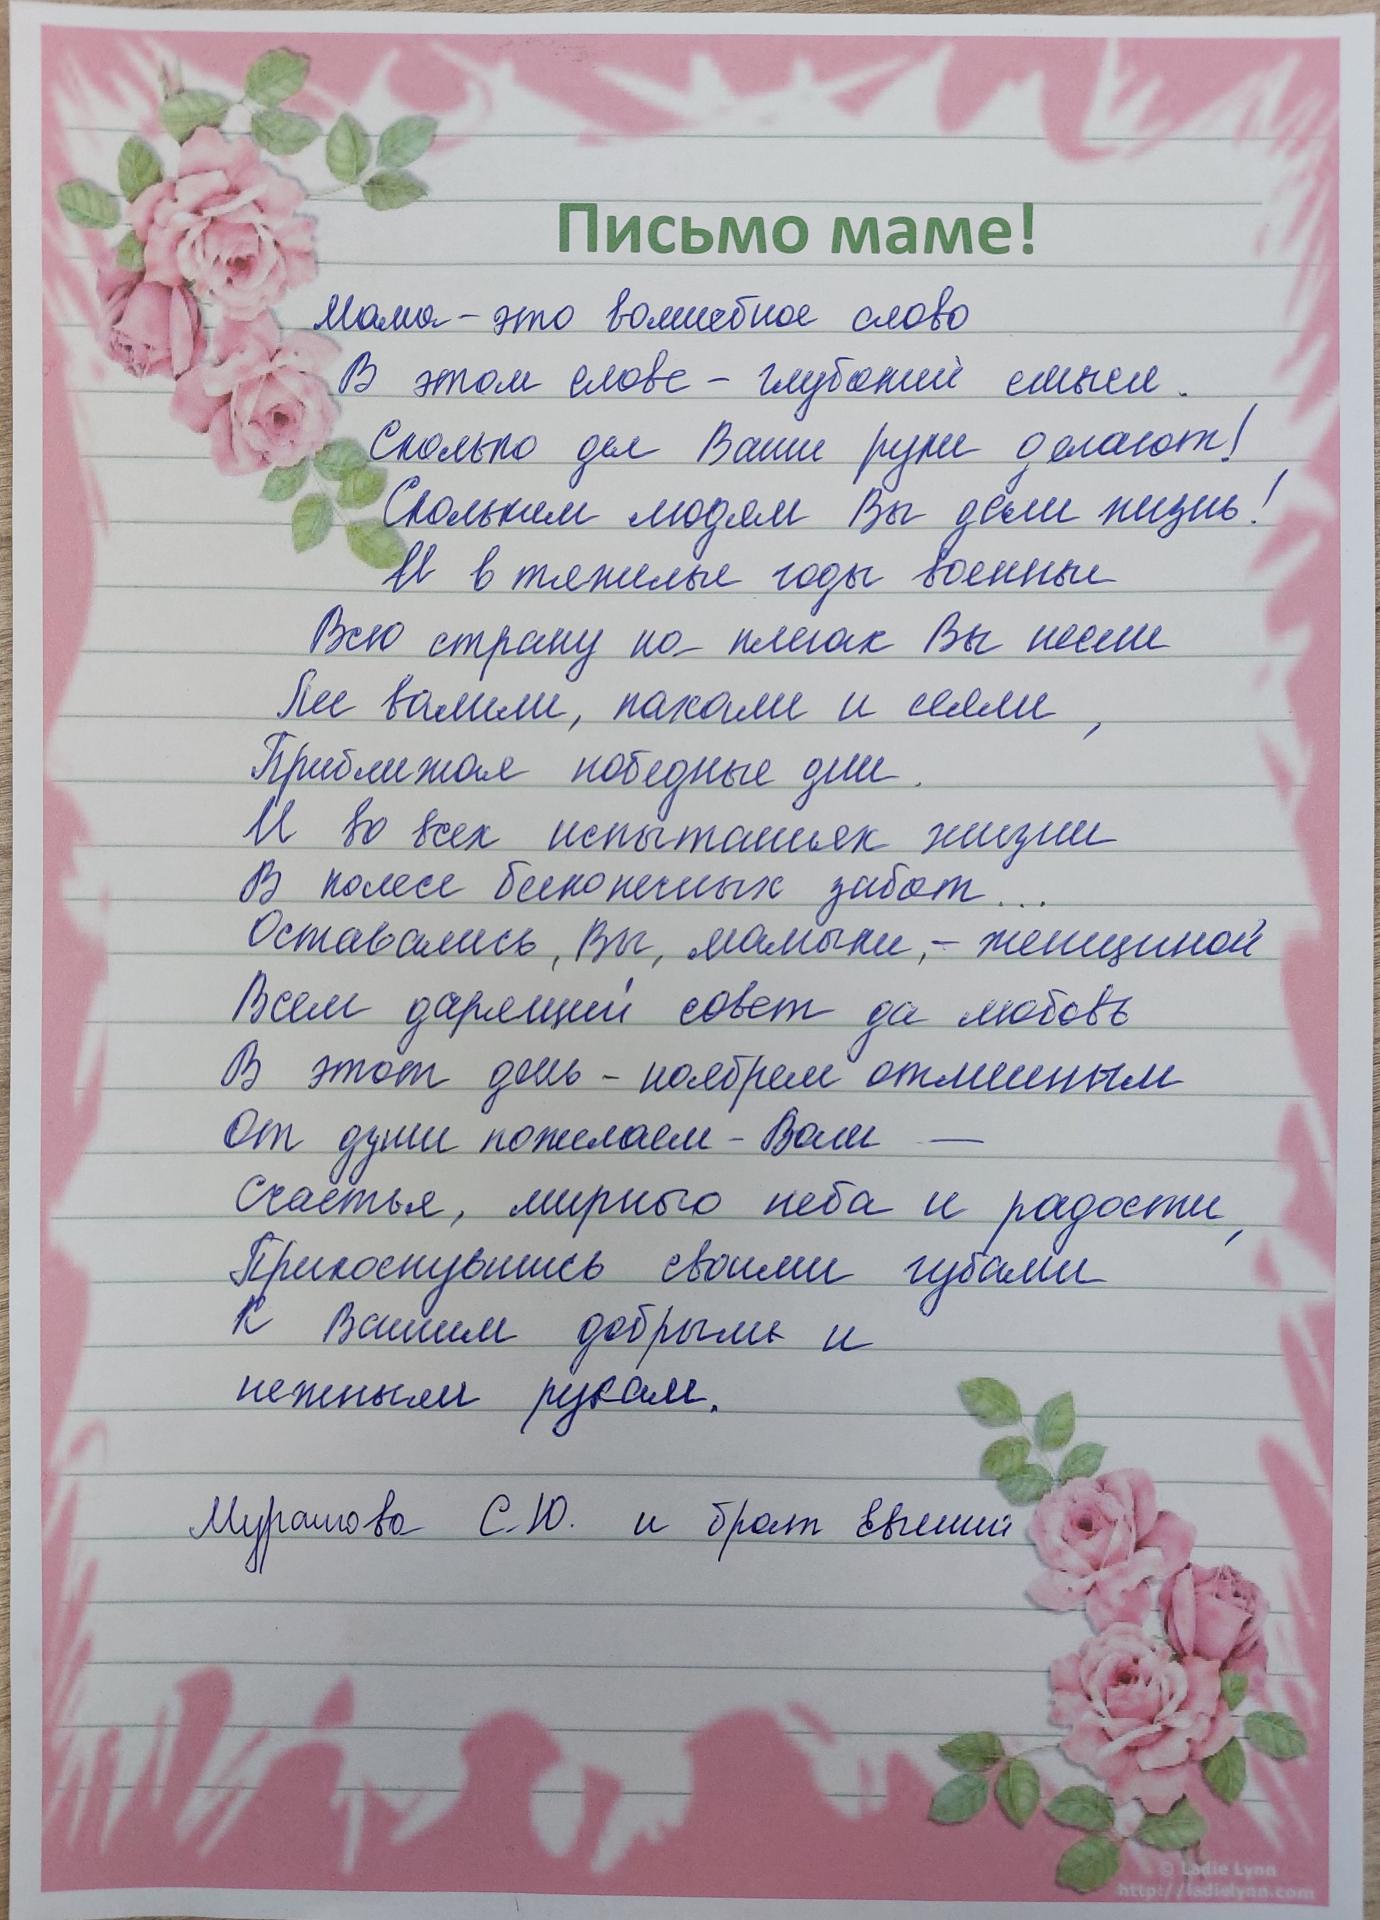 Письмо маме!
Мама - это волшебное слово
В этом слове - глубокий смысл.
Сколько дел Ваши руки делают!
Скольким людям Вы дали жизнь!
И в тяжелые годы военные
Всю страну на плечах Вы несли
Лес валили, пахали и сеяли,
Приближая победные дни.
И во всех испытаниях жизни
В колесе бесконечных забот...
Оставались, Вы, мамыки, - женщиной
Всем дарящий совет да любовь
В этот день - ноябрем отменным
От души пожелаем - Вам —
Счастья, мирного неба и радости,
Прикоснувшись своими губами
К Вашим добрым и
нежным рукам.
Мурашова С.Ю. и брат Евгений
© Ladie Lynn
http://ladielynn.com